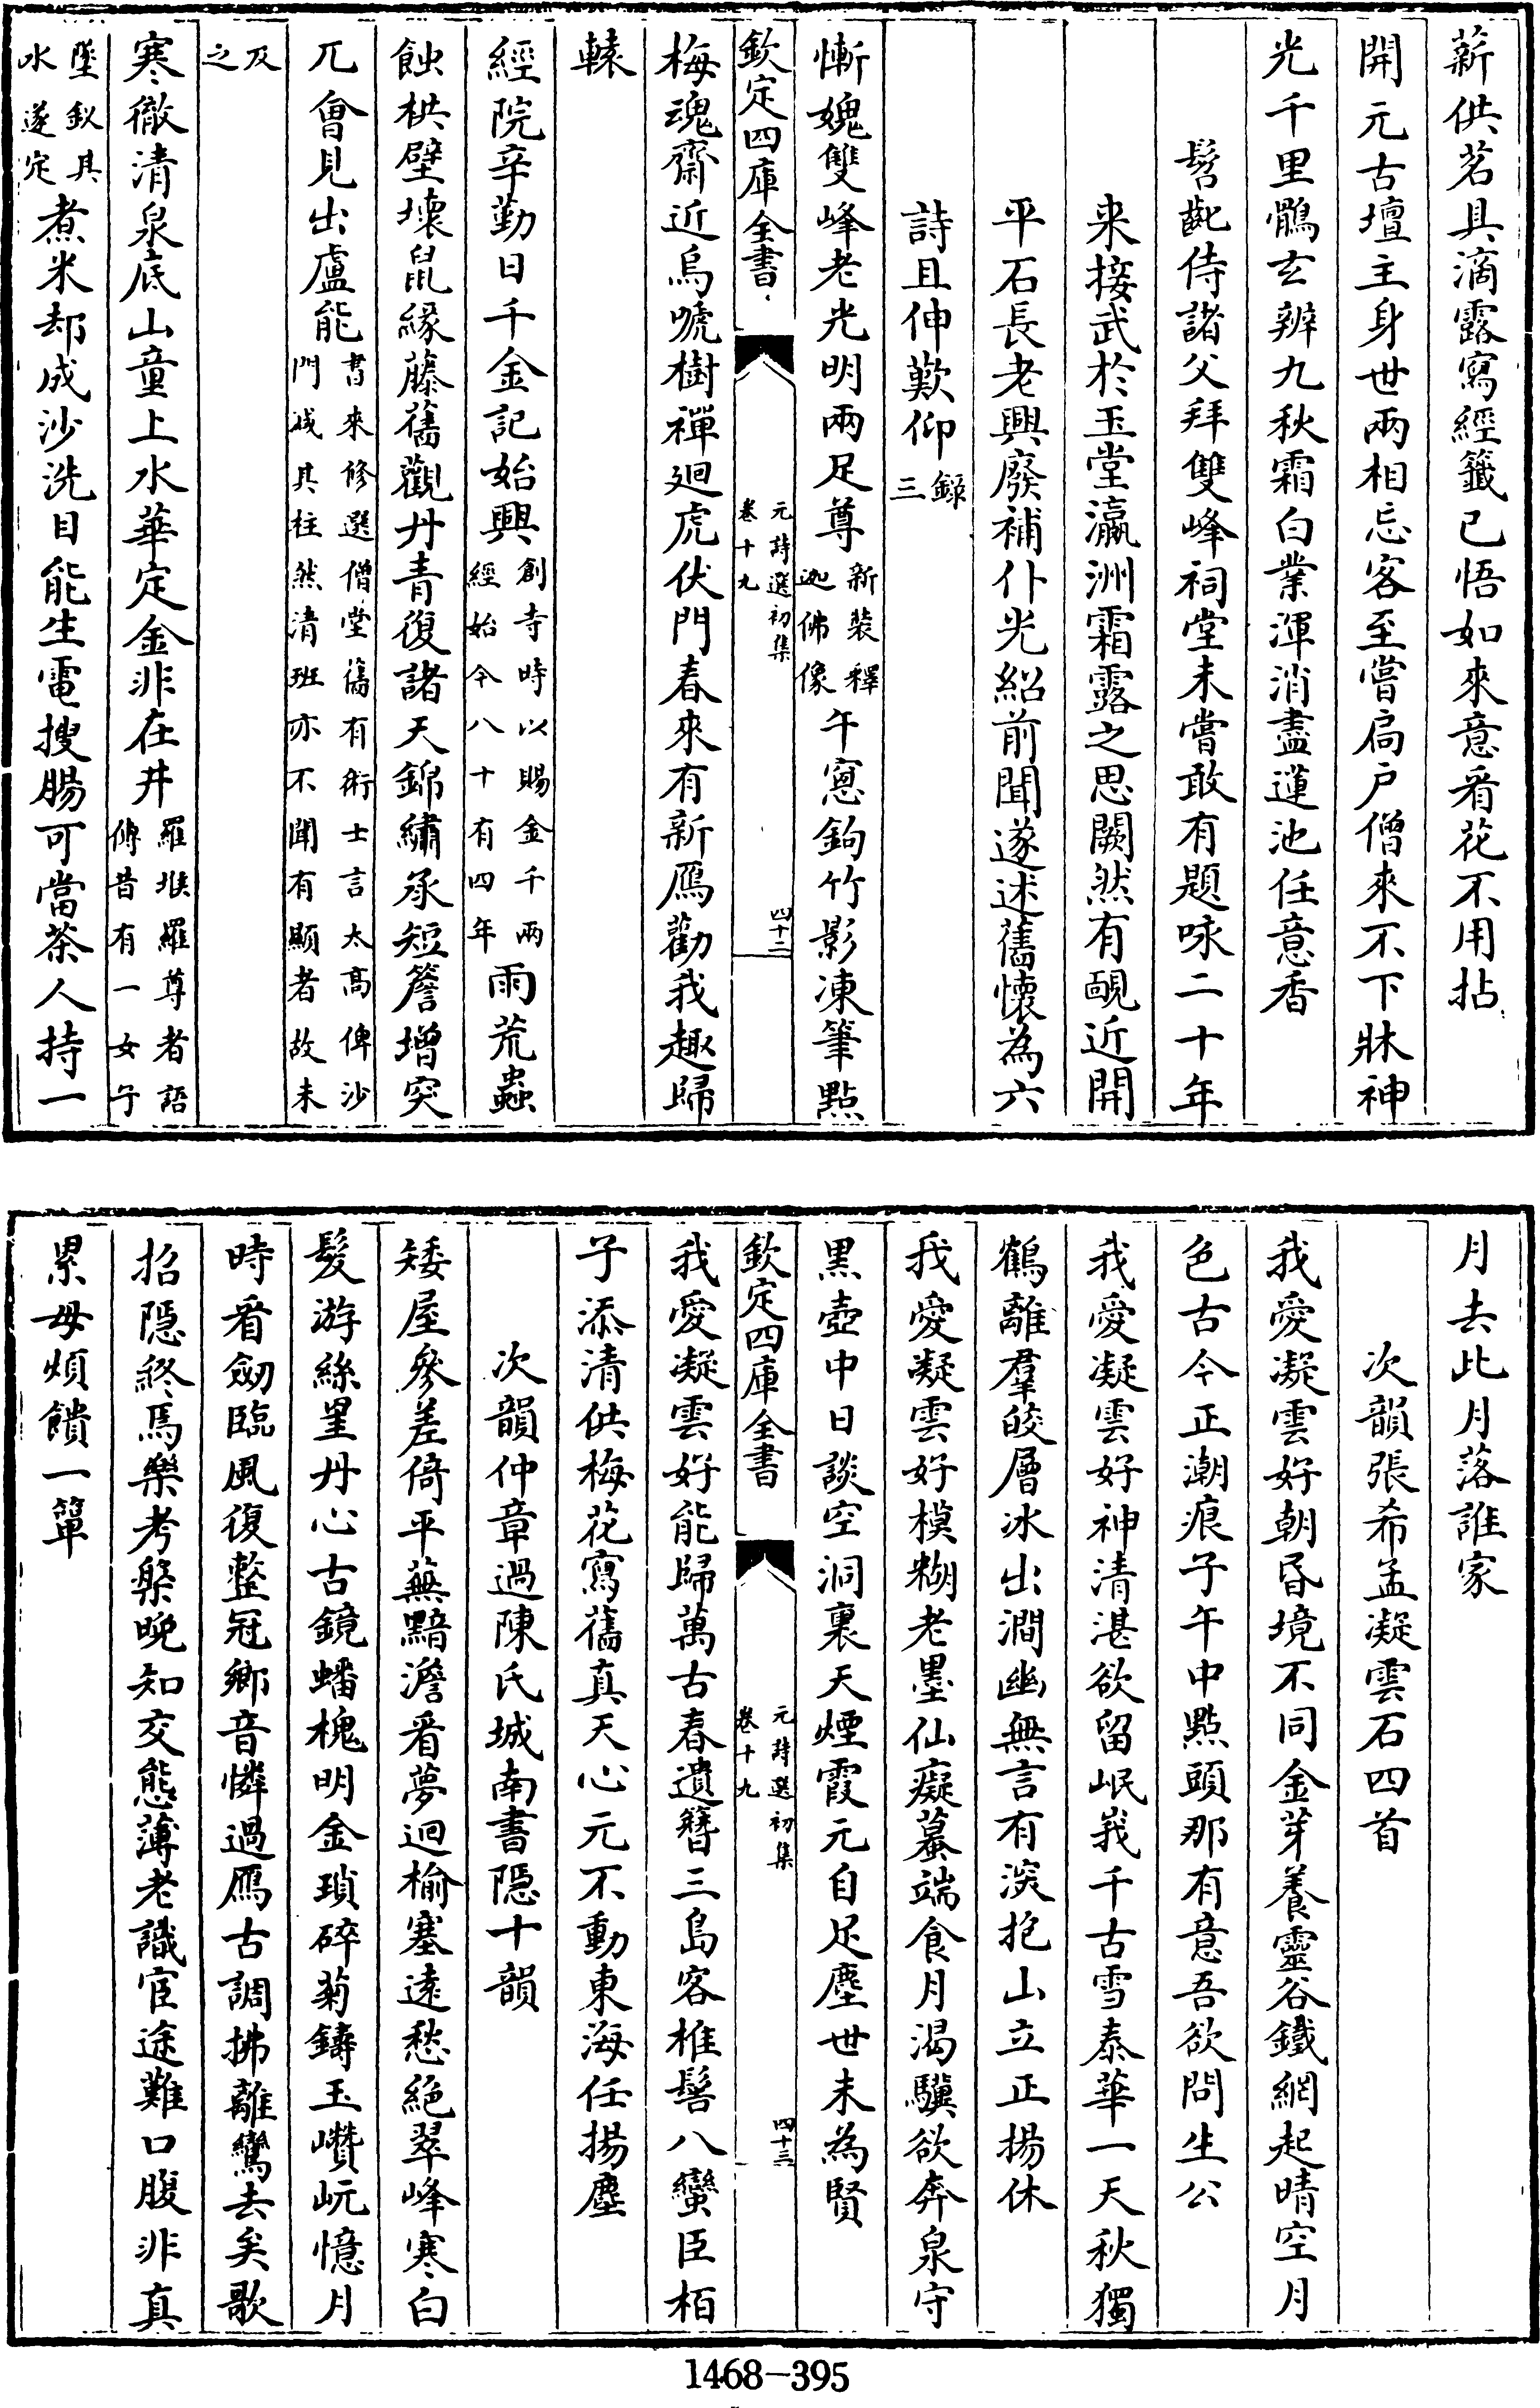 薪供茗具滴露寫經籤已悟如來意看花不用拈
開元古壇主身世兩相忘客至嘗扃户僧來不下牀神
光千里鶻玄辨九秋霜白業渾消盡蓮池任意香
髫齔侍諸父拜雙峰祠堂未嘗敢有題咏二十年
来接武於玉堂瀛洲霜露之思闕然有靦近開
平石長老興廢補仆光紹前聞遂述舊懐為六
詩且伸歎仰錄三
慚媿雙峰老光明兩足尊新裝釋迦佛像午窻鉤竹影凍筆點
欽定四庫全書
元詩選初集
卷十九
四十二
梅魂齋近烏唬樹禪廻虎伏門春來有新鴈勸我趣歸
轅
經院辛勤日千金記始興創寺時以賜金千兩經始今八十有四年雨荒蟲
蝕栱壁壞鼠緣藤舊觀丹青復諸天錦繡承短簷增突
兀會見出盧能書來修選僧堂舊有術士言太高俾沙門減其柱然清班亦不聞有顯者故末
及之
寒徹清泉底山童上水華定金非在井羅堠羅尊者語傅昔有一女子
墜釵具水遂定煮米却成沙洗目能生電搜腸可當茶人持一
月去此月落誰家
次韻張希孟凝雲石四首
我愛凝雲好朝昏境不同金芽養靈谷鐵網起晴空月
色古今正潮痕子午中點頭那有意吾欲問生公
我愛凝雲好神清湛欲留岷峩千古雪泰華一天秋獨
鶴離羣皎層冰出澗幽無言有淡抱山立正揚休
我愛凝雲好模糊老墨仙癡蟇端食月渴驥欲奔泉守
黒壺中日談空洞裏天煙霞元自足塵世未為賢
欽定四庫全書
元詩選初集
卷十九
四十三
我愛凝雲好能歸萬古春遺簪三島客椎髻八蠻臣栢
子添清供梅花寫舊真天心元不動東海任揚塵
次韻仲章過陳氏城南書隠十韻
矮屋參差倚平蕪黯澹看夢迴榆塞遠愁絕翠峰寒白
髮游絲罣丹心古鏡蟠槐明金瑣碎菊鑄玉巑岏憶月
時看劒臨風復整冠鄉音憐過鴈古調拂離鸞去矣歌
招隠終焉樂考槃晚知交態薄老識宦途難口腹非真
累毋煩饋一簞
1468-395